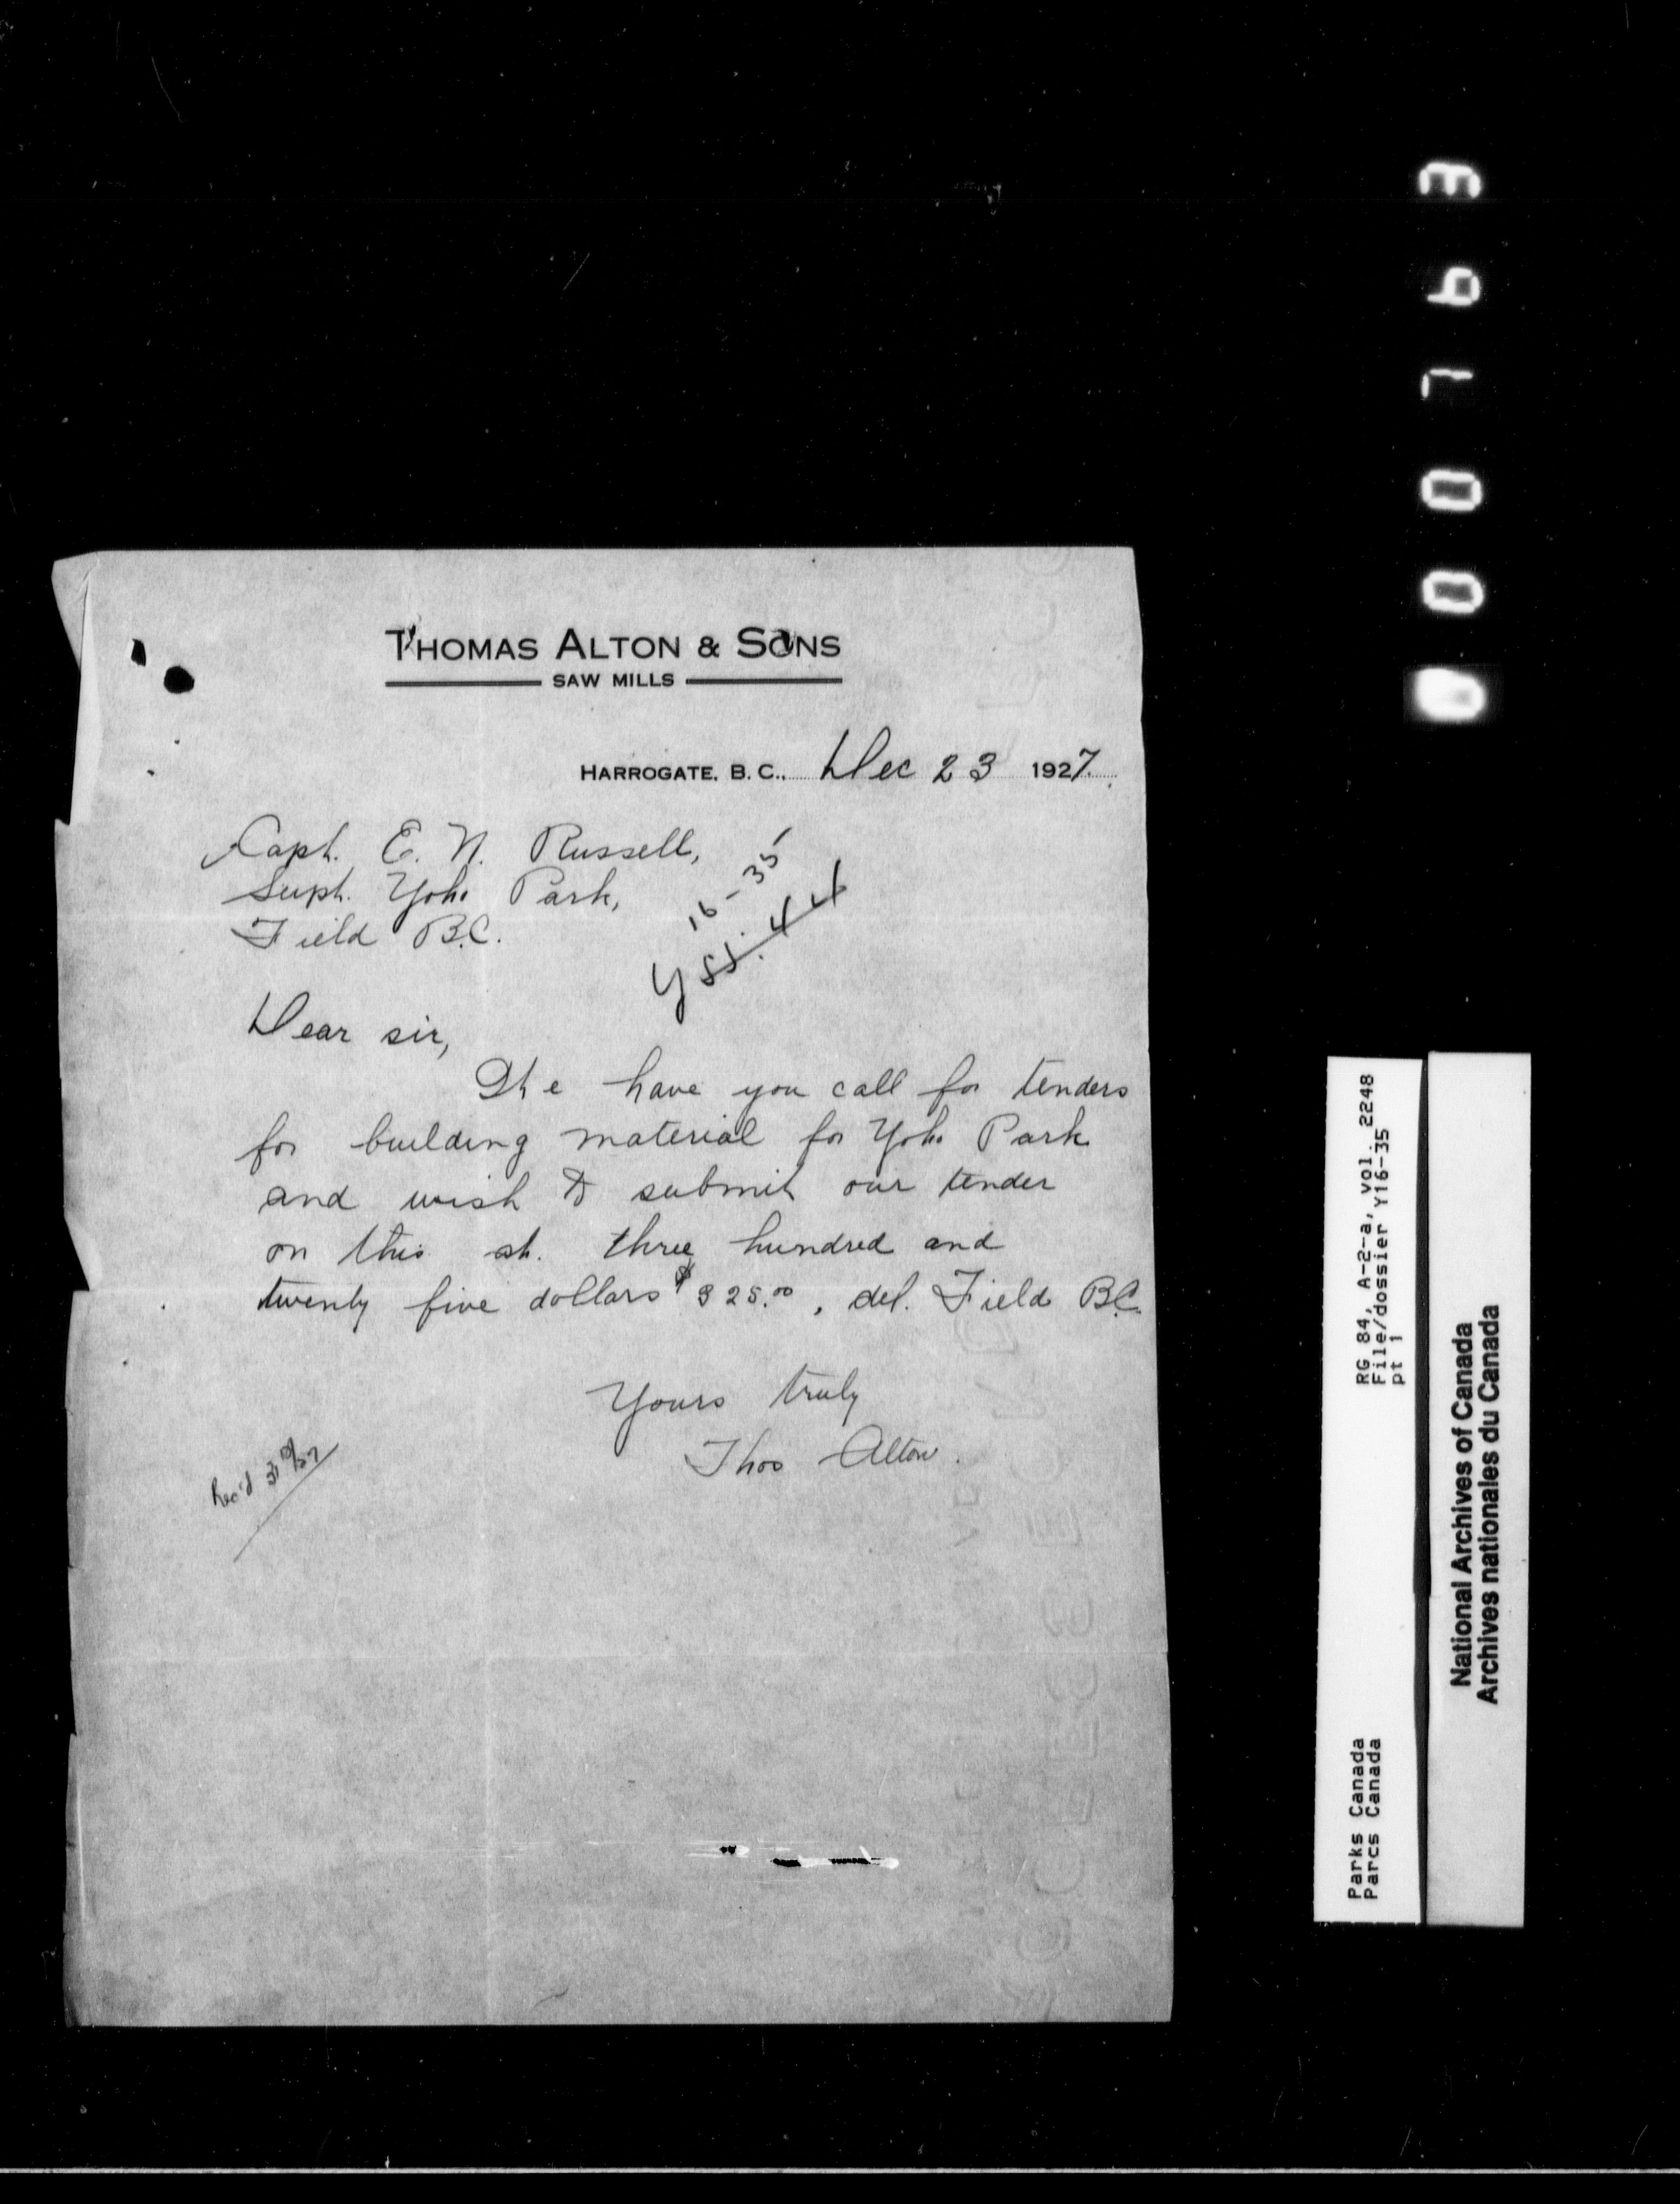 THOMAS ALTON & SONS
SAW MILLS
HARROGATE, B. C., Dec 23 1927.
Capt. E. N. Russell,
Supt. Yoho Park,
Field B.C.
16-35
Y 55.44
Dear sir,
We have you call for tenders
for building material for Yoho Park
and wish to submit our tender
on this at. three hundred and
twenty five dollars $325.00, del. Field B.C.
Yours truly
Thos Alton.
Rec'd
000763
RG 84, A-2-a, vol. 2248
File/dossier Y16-35
pt 1
Parks Canada
Parcs Canada
National Archives of Canada
Archives nationales du Canada